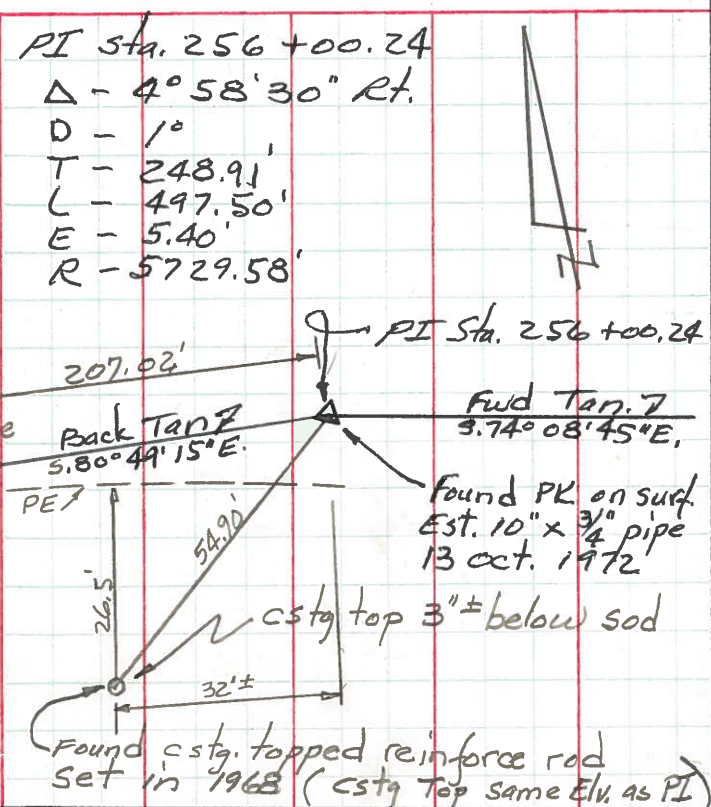 PI Sta. 256 +00.24
Δ - 4° 58' 30" Rt.
D - 1°
T - 248.91'
L - 497.50'
E - 5.40'
R - 5729.58'
N
PI Sta. 256 +00.24
207.02'
Back Tan
S.80° 49' 15" E.
Fwd Tan.
S.74° 08' 45" E.
e
PE
Found PK on surf.
Est. 10" x 3/4" pipe
13 Oct. 1972
54.90'
26.5'
cstg top 3"± below sod
32'±
Found cstg. topped reinforce rod
Set in 1968 (cstg Top same Elv. as PI)